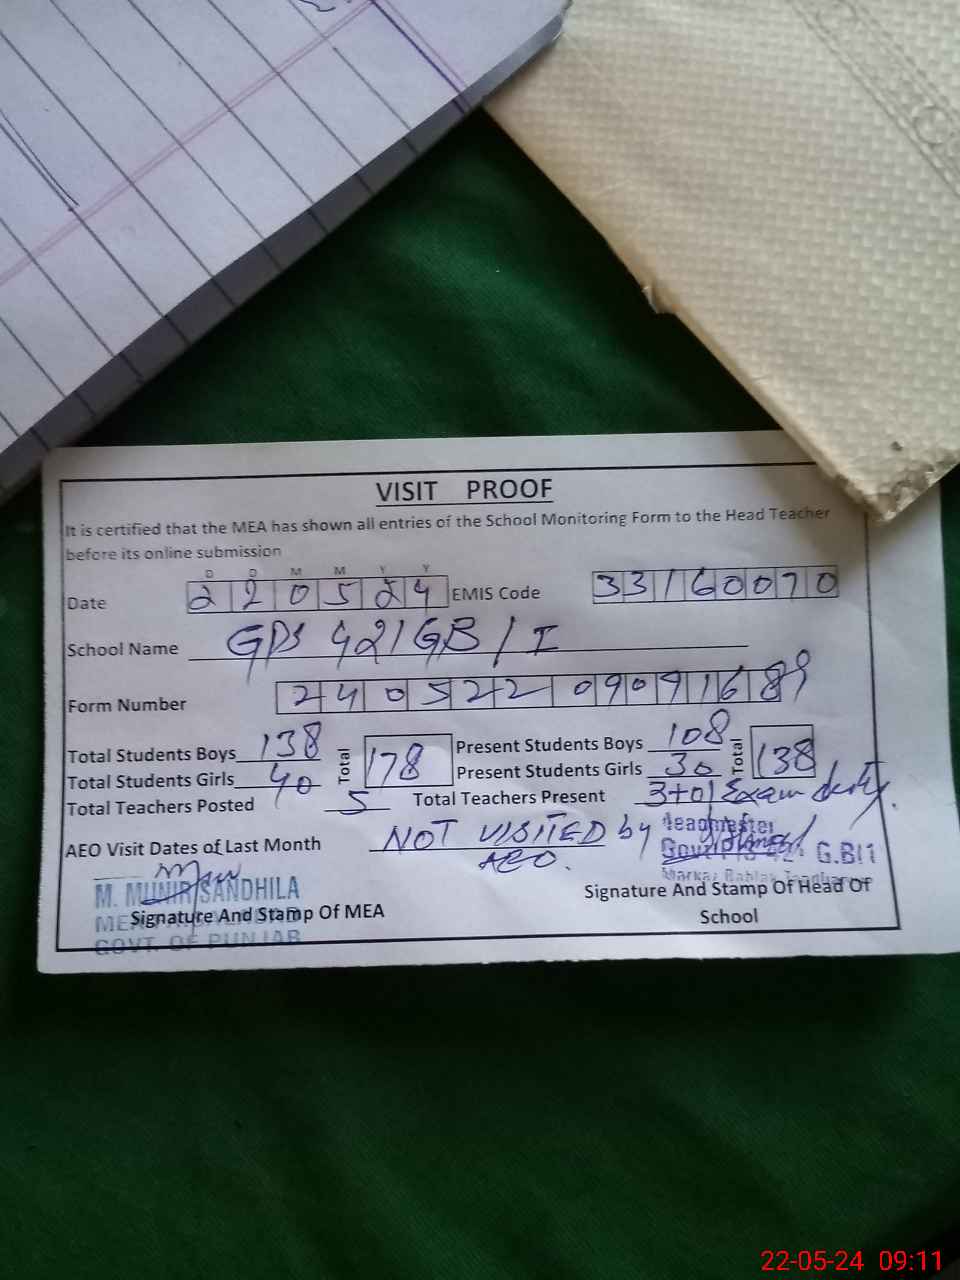 VISIT PROOF
It is certified that the MEA has shown all entries of the School Monitoring Form to the Head Teacher
before its online submission
D D M M Y Y
Date 220524 EMIS Code 33160070
School Name GPS 421 GB / I
Form Number 2405220909 1689
Total Students Boys 138 Total 178 Present Students Boys 108 Total 138
Total Students Girls 40 Present Students Girls 30
Total Teachers Posted 5 Total Teachers Present 3+01 Exam duty.
AEO Visit Dates of Last Month NOT VISITED by
AEO.
M. MUNIR SANDHILA
Signature And Stamp Of MEA
GOVT. OF PUNJAB
G.B/1
Signature And Stamp Of Head Of
School
22-05-24 09:11